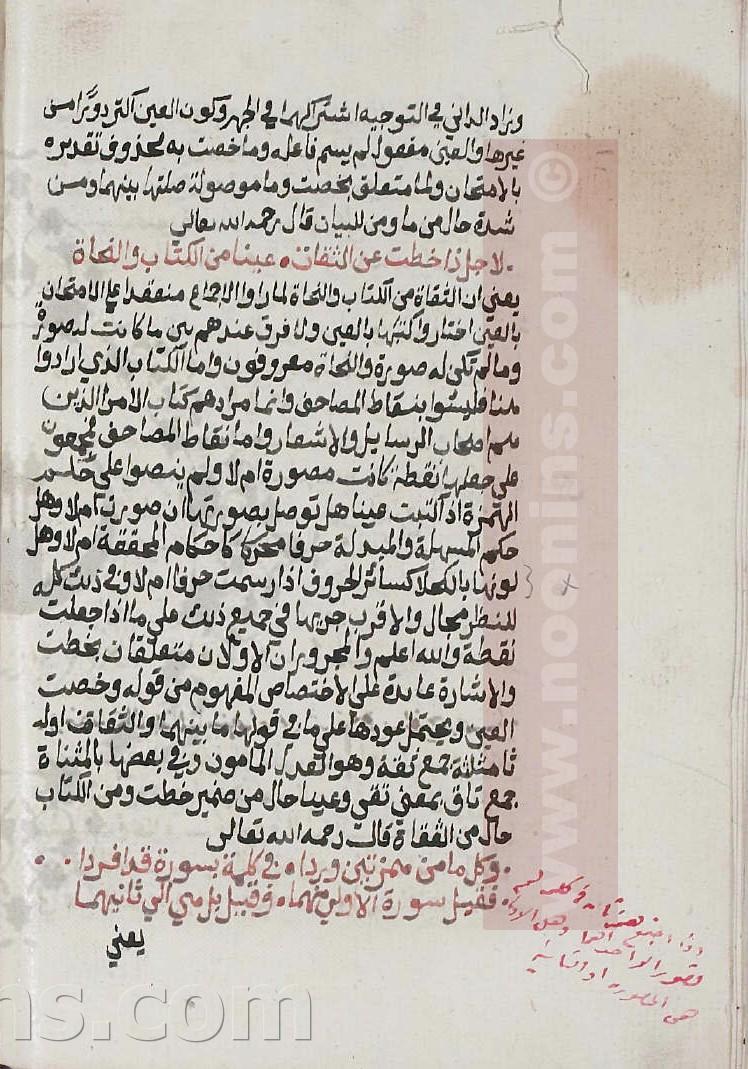 وزاد الداني في التوجيه اشتراكهما في الجهر وكون العين اكثر دورا من
غيرها والعين مفعول لم يسم فاعله وما خصت به لحذوف تقديره
بالامتحان ولما متعلق بخصت وما موصولة صلتها بينهما ومن
شدة حال من ما ومن للبيان قال رحمه الله تعالى
لاجل ذا خطت عن الثقات عينا من الكتاب والنحاة
يعني ان الثقاة من الكتاب والنحاة لما راوا الاجماع منعقدا علي الامتحان
بالعين اختاروا كتبها بالعين ولا فرق عندهم بين ما كانت له صورة
وما لم تكن له صورة والنحاة معروفون واما الكتاب الذي ارادوا
هنا فليسوا بنقاط المصاحف وانما مرادهم كتاب الامرا الذين
هم اصحاب الرسايل والاشعار واما نقاط المصاحف فمجمعون
على جعلها نقطة كانت مصورة ام لا ولم ينصوا على حكم
الهمزة اذا كتبت عينا هل توصل بصورتها ان صورت ام لا وهل
حكم المسهلة والمبدلة حرفا محركا كاحكام المحققة ام لا وهل
لونها بالكحلا كسائر الحروف اذا رسمت حرفا ام لا وفي ذلك كله
للنظر مجال والاقرب جريها في جميع ذلك على ما اذا جعلت
نقطة والله اعلم والمجروران الاولان متعلقان بخطت
والاشارة عايدة على الاختصاص المفهوم من قوله وخصت
العين ويحتمل عودها على ما في قوله لما بينهما والثقات اوله
ثا مثلثة جمع ثقة وهو العدل المامون وفي بعضها بالمثناة
جمع تاق بمعنى تقي وعينا حال من ضمير خطت ومن الكتاب
حال من الثقاة قال رحمه الله تعالى
وكل ما من همزتين وردا في كلمة بصورة قد افردا
فقيل صورة الاولى منهما وقيل بل هي الي ثانيهما
يعني
اذا اجتمع همزتان في كلمة
هي المصورة او الثانية
© www.noonins.com
ns.com